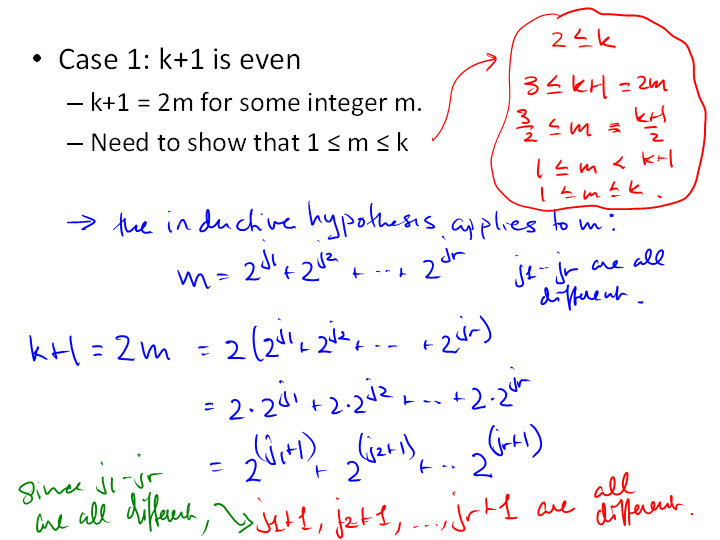 • Case 1: k+1 is even
– k+1 = 2m for some integer m.
– Need to show that 1 ≤ m ≤ k
2 ≤ k
3 ≤ k+1 = 2m
3/2 ≤ m = (k+1)/2
1 ≤ m < k+1
1 ≤ m ≤ k.
→ the inductive hypothesis applies to m:
m = 2^j1 + 2^j2 + ... + 2^jr j1-jr are all
different.
k+1 = 2m = 2(2^j1 + 2^j2 + ... + 2^jr)
= 2·2^j1 + 2·2^j2 + ... + 2·2^jr
= 2^(j1+1) + 2^(j2+1) + ... 2^(jr+1)
Since j1-jr
are all different, → j1+1, j2+1, ..., jr+1 are all
different.